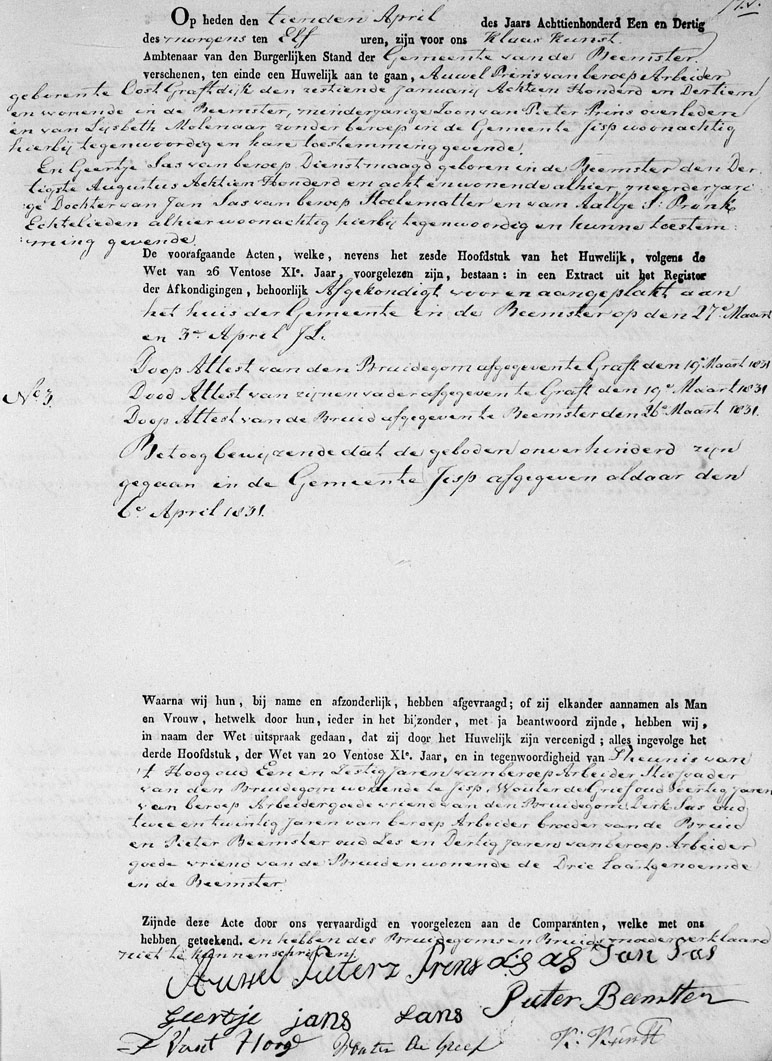 Op heden den tienden April des Jaars Achttienhonderd Een en Dertig
des morgens ten Elf uren, zijn voor ons Klaas Kunst
Ambtenaar van den Burgerlijken Stand der Gemeente van de Beemster
verschenen, ten einde een Huwelijk aan te gaan, Auwel Prins van beroep Arbeider
geboren te Oost Graftdijk den zestiende January Achtien Honderd en Dertien
en wonende in de Beemster, minderjarige Zoon van Pieter Prins overleden
en van Lijsbeth Molenaar zonder beroep in de Gemeente Jisp woonachtig
hierbij tegenwoordig en hare toestemming gevende.
En Geertje Sas van beroep Dienstmaagd geboren in de Beemster den Der-
tigste Augustus Achtien Honderd en acht en wonende alhier, meerderjari
ge Dochter van Jan Sas van beroep en van Aaltje Pronk
Echtelieden alhier woonachtig hierbij tegenwoordig en hunne toestem:
:ming gevende.
De voorafgaande Acten, welke, nevens het zesde Hoofdstuk van het Huwelijk, volgens de
Wet van 26 Ventose XIe. Jaar, voorgelezen zijn, bestaan: in een Extract uit het Register
der Afkondigingen, behoorlijk Afgekondigt voor en aangeplakt aan
het huis der Gemeente in de Beemster op den 27e Maart
en 3e April JL.
Doop Attest van den Bruidegom afgegeven te Graft den 19e Maart 1831
No 3.
Dood Attest van zijnen vader afgegeven te Graft den 19e Maart 1831
Doop Attest van de Bruid afgegeven te Beemster den 26e Maart 1831.
Betoog bewijzende dat de geboden onverhinderd zijn
gegaan in de Gemeente Jisp afgegeven aldaar den
6e April 1831.
Waarna wij hun, bij name en afzonderlijk, hebben afgevraagd; of zij elkander aannamen als Man
en Vrouw, hetwelk door hun, ieder in het bijzonder, met ja beantwoord zijnde, hebben wij,
in naam der Wet uitspraak gedaan, dat zij door het Huwelijk zijn vereenigd; alles ingevolge het
derde Hoofdstuk, der Wet van 20 Ventose XIe. Jaar, en in tegenwoordigheid van Theunis van
't Hoog oud Een en Zestig jaren van beroep Arbeider Stiefvader
van den Bruidegom wonende te Jisp, Wouter de Greef oud Veertig jaren
van beroep Arbeider goede vriend van den Bruidegom Dirk Sas oud
twee en twintig jaren van beroep Arbeider broeder van de Bruid
en Pieter Beemster oud Zes en Dertig jaren van beroep Arbeider
goede vriend van de Bruid en wonende de Drie Laastgenoemde
in de Beemster.
Zijnde deze Acte door ons vervaardigd en voorgelezen aan de Comparanten, welke met ons
hebben geteekend. en hebben des Bruidegoms en Bruids moeder verklaard
niet te kunnen schrijven
Auwel Pieterz Prins Jan Sas
Geertje jans sans Pieter Beemster
T Vant Hoog Wouter De Greef K: Kunst